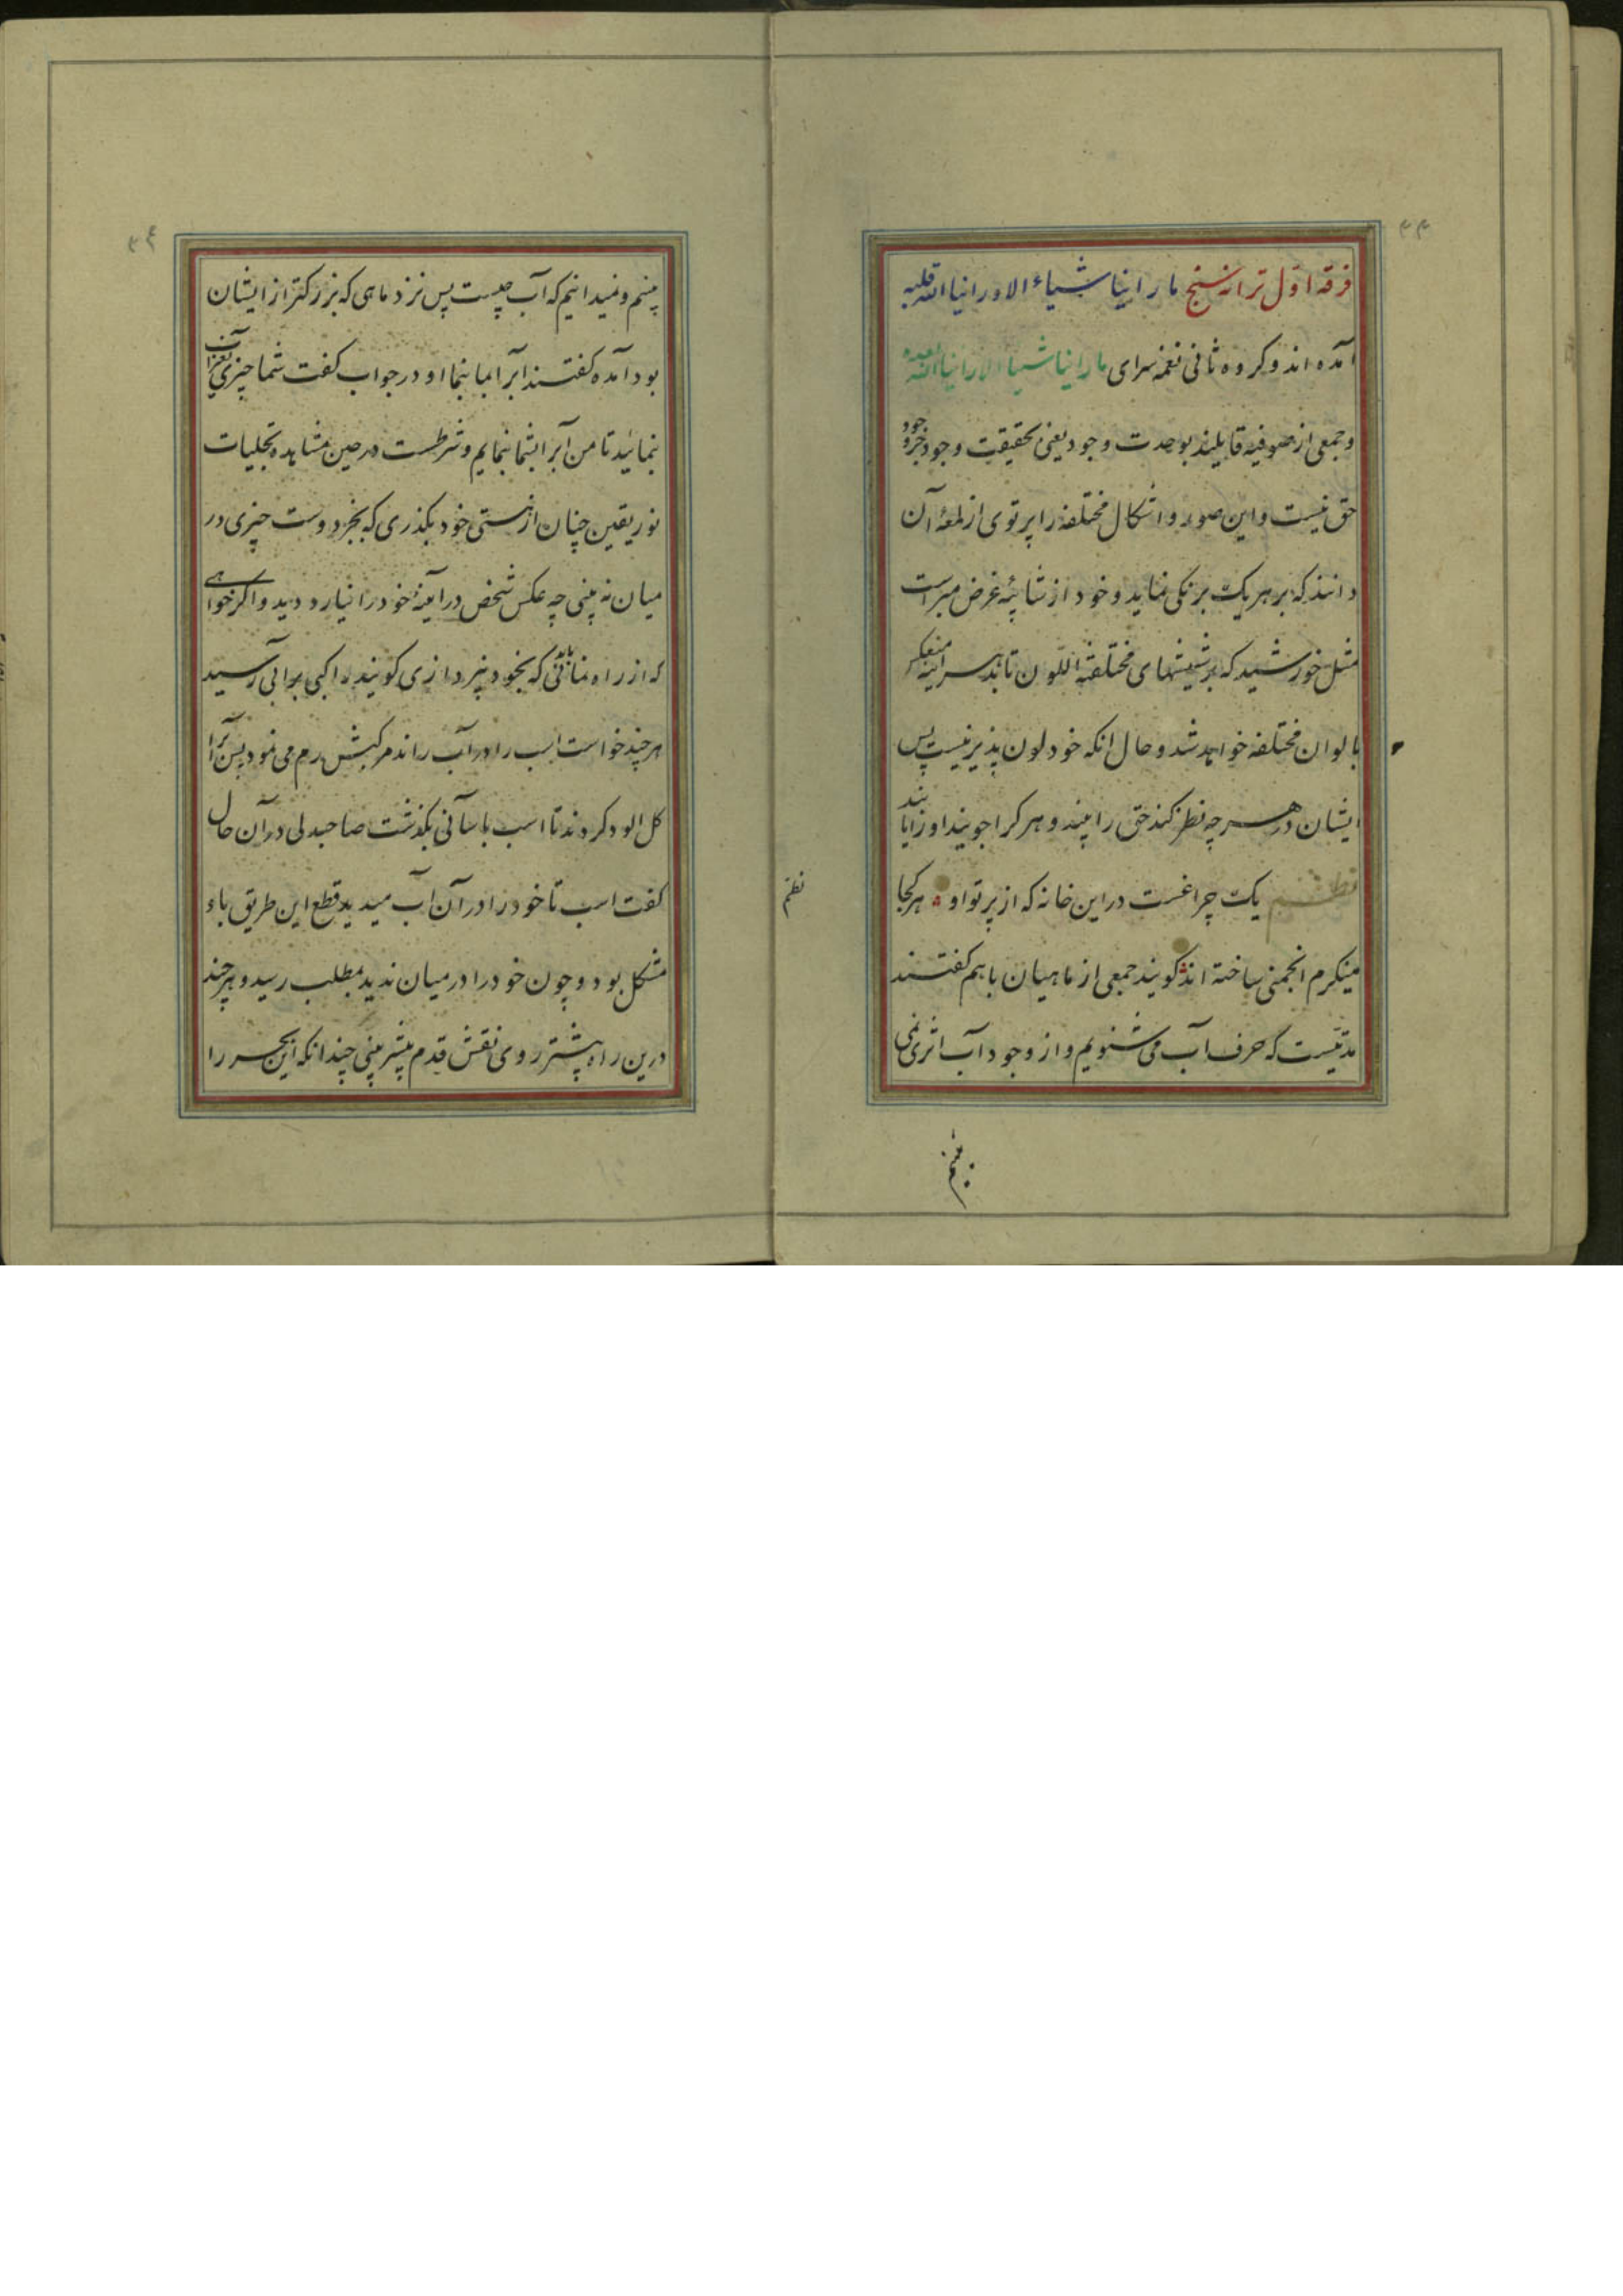 فرقه اوّل ترانه سنج ما راینا شیاء الا و راینا الله قبله
آمده اند و کروه ثانی نغمه سرای ما راینا شیاء الا راینا الله بعده
و جمعی از صوفیه قایلند بوحدت وجود یعنی بحقیقت وجود جز وجود
حق نیست و این صور و اشکال مختلفه را پرتوی از لمعهٔ آن
دانند که بر هر یک برنکی نماید و خود از شائبهٔ غرض مبراست
مثل خورشید که بر شیشهای مختلفة اللون تابد هر اینه منعکس
بالوان مختلفه خواهد شد و حال انکه خود لون پذیر نیست پس
ایشان در هر چه نظر کنند حق را بینند و هر کرا جویند او را یابند
نظم یک چراغست در این خانه که از پرتو او هر کجا
مینکرم انجمنی ساخته اند کویند جمعی از ماهیان با هم کفتند
مدتیست که حرف آب می شنویم و از وجود آب اثری نمی
بینم
۳۴
بینم و نمیدانیم که آب چیست پس نزد ماهی که بزرکتر از ایشان
بود آمده کفتند آبرا بما بنما او در جواب کفت شما چیزی بغیر از آب
بنمائید تا من آبرا بشما بنمایم و شرطست در حین مشاهده تجلیات
نور یقین چنان از هستی خود بکذری که بجز دوست چیزی در
میان نه بینی چه عکس شخص در آینه خود را نیارد دید و اکر خواهی
که از راه نمانی باید که بخود نپردازی کویند راکبی بر آبی رسید
هر چند خواست اسب را در آب راند مرکبش رم می نمود پس آبرا
کل الود کردند تا اسب باسانی بکذشت صاحبدلی در آن حال
کفت اسب تا خود را در آن آب میدید قطع این طریق باو
نظم
مشکل بود و چون خود را در میان ندید بمطلب رسید و هر چند
درین راه پیشتر روی نقش قدم بیشتر بینی چندانکه این بحر را